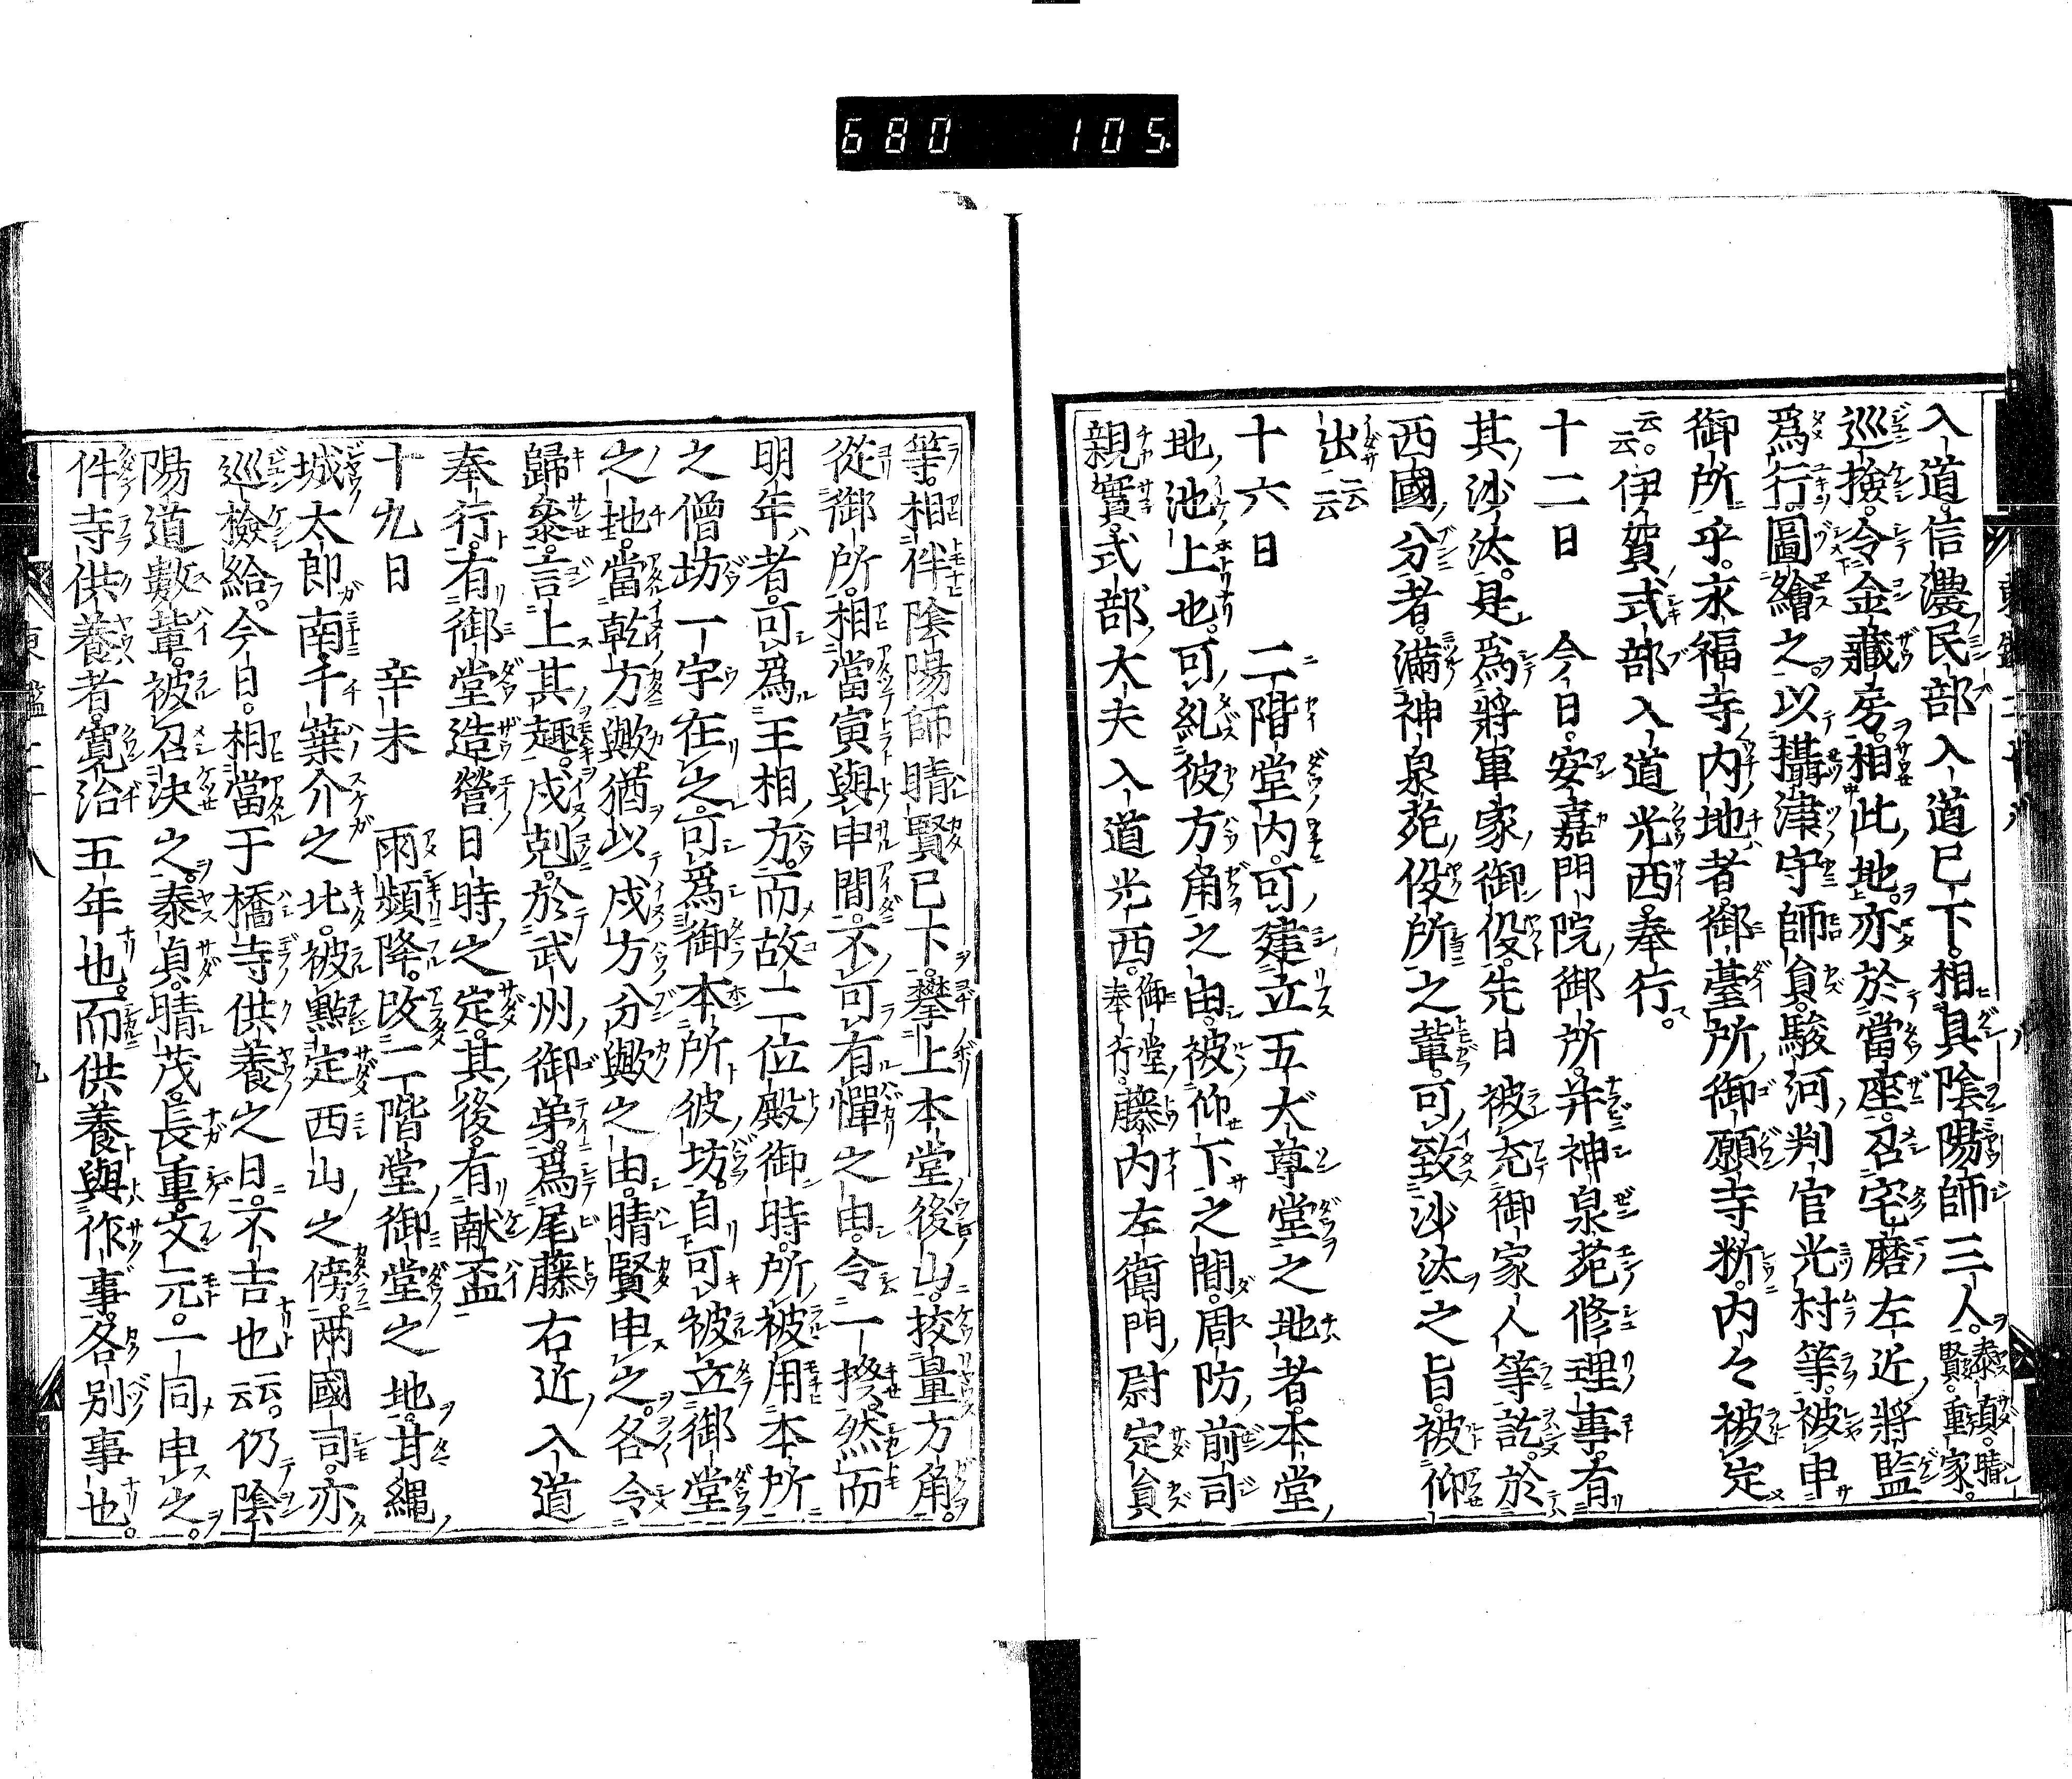 680 105
入道。信濃民部入道已下。相具陰陽師三人。泰貞。晴賢。重家。
巡撿。令金藏房。相此地。亦於當座。召宅磨左近將監
爲行。圖繪之。以攝津守師員。駿河判官光村等。被申
御所乎。永福寺内地者。御臺所。御願寺新。内々被定
云云。伊賀式部入道光西。奉行。
十二日 今日。安嘉門院御所。并神泉苑修理事。有
其沙汰。是爲將軍家御役。先日被充御家人等訖。於
西國分者。滿神泉苑役所之輩。可致沙汰之旨。被仰
出云云
十六日 二階堂内。可建立五大尊堂之地者。本堂
地池上也。可糺彼方角之由。被仰下之間。周防前司
親實。式部大夫入道光西。御堂奉行。藤内左衛門尉定員
等。相伴陰陽師晴賢已下。攀上本堂後山。挍量方角。
從御所。相當寅與申間。不可有憚之由。令一揆。然而
明年者。可爲王相方。而故二位殿御時。所被用本所
之僧坊一宇在之。可爲御本所。彼坊。自可被立御堂
之地。當乾方歟。猶以戌方分歟之由。晴賢申之。各令
歸參。言上其趣。戌剋。於武州御弟。爲尾藤右近入道
奉行。有御堂造營日時之定。其後。有献盃
十九日 辛未 雨頻降。改二階堂御堂之地。甘繩
城太郎南。千葉介之北。被點定西山之傍。兩國司。亦
巡撿給。今日。相當于橋寺供養之日。不吉也云云。仍陰
陽道數輩。被召決之。泰貞。晴茂。長重。文元。一同申之。
件寺供養者。寛治五年也。而供養與作事。各別事也。